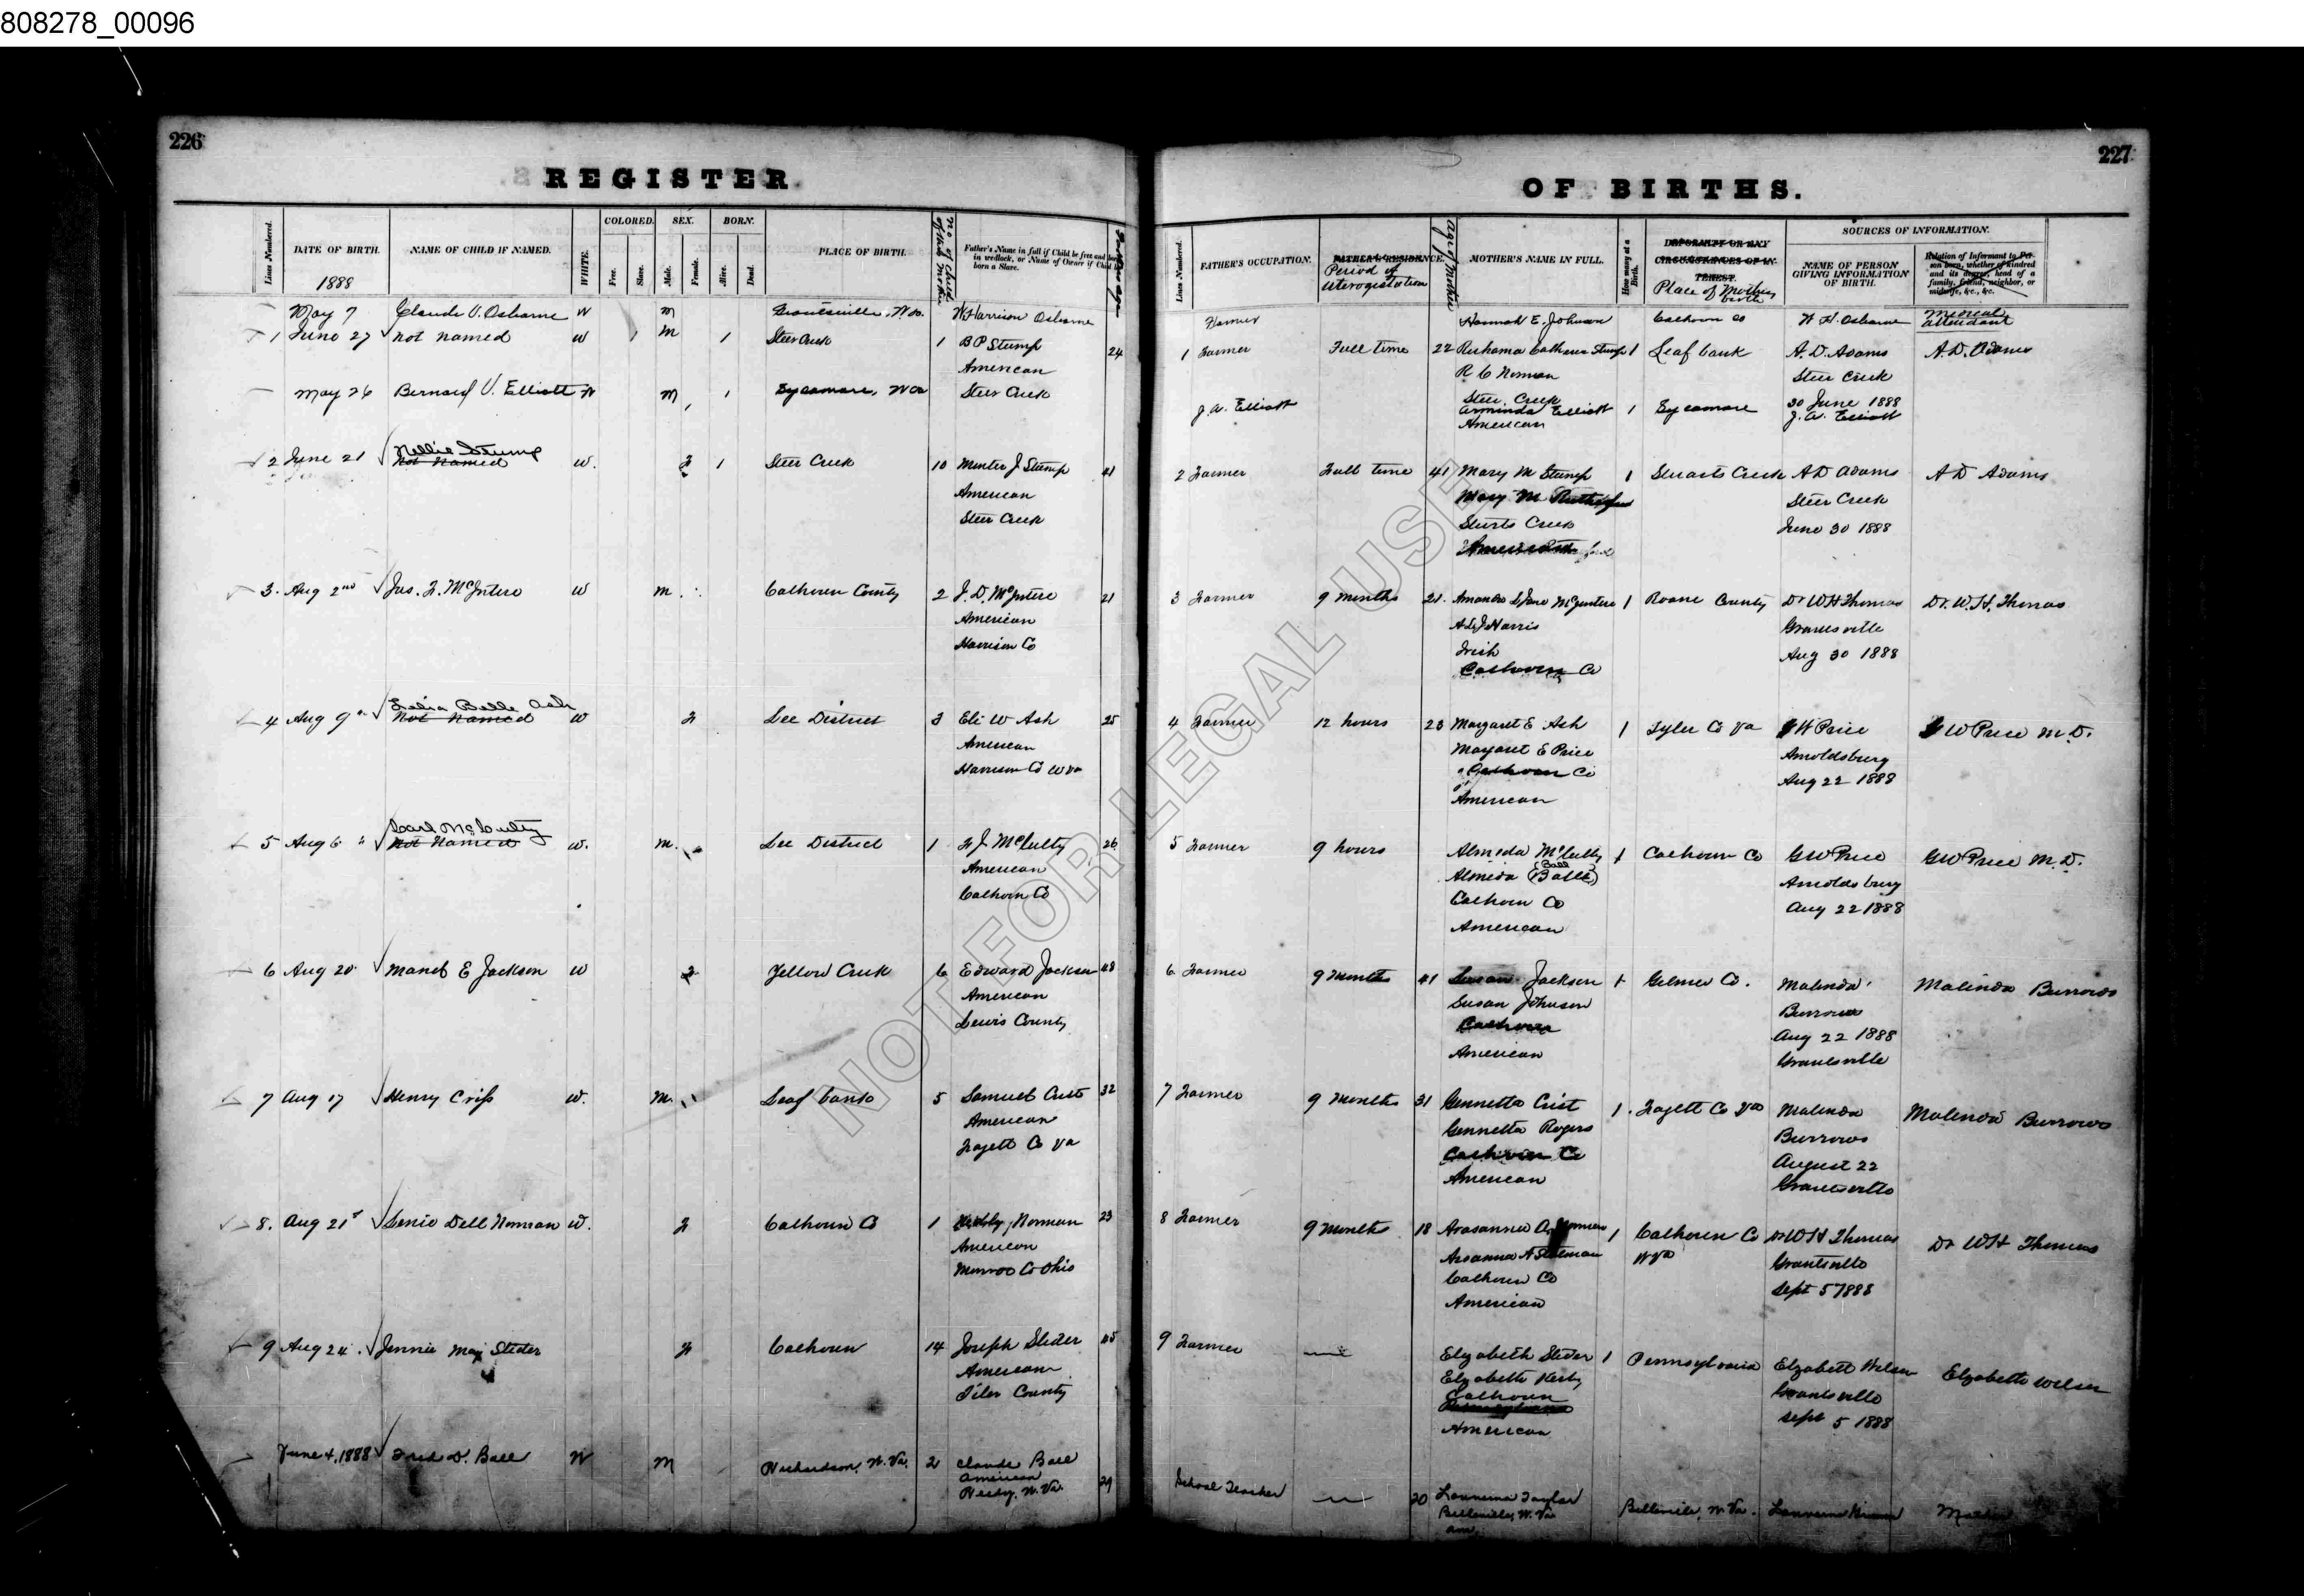 808278_00096
226
REGISTER
Lines Numbered.
DATE OF BIRTH.
1888
NAME OF CHILD IF NAMED.
WHITE.
COLORED.
Free.
Slave.
SEX.
Male.
Female.
BORN.
Alive.
Dead.
PLACE OF BIRTH.
No of Child of this Mother
Father's Name in full if Child be free and born
in wedlock, or Name of Owner if Child
born a Slave.
Father's age
May 7 Claude V. Osborne W M W Harrison Osborne
1 June 27 not named W 1 M 1 Steer Creek 1 B P Stump 24
American
May 26 Bernard V. Elliott W M 1 Sycamore, W Va Steer Creek
Nellie Stump
2 June 21 Not Named W. F 1 Steer Creek 10 Minter J Stump 41
American
Steer Creek
3. Aug 2nd Jas. F. McIntire W M. Calhoun County 2 J. D. McIntire 21
American
Harrison Co
Belle Ash
4 Aug 9 Not Named W F Lee District 3 Eli W Ash 25
American
Harrison Co W Va
Carl McCulty
5 Aug 6 " Not Named W. M. Lee District 1 F J McCulty 26
American
Calhoun Co
6 Aug 20 E Jackson W F Yellow Creek 6 Edward Jackson 48
American
Lewis County
7 Aug 17 Henry Criss W. M. Leaf Bank 5 Samuel Crist 32
American
Fayett Co Va
8. Aug 21st Dell Norman W. F Calhoun Co 1 Norman 23
American
Monroe Co Ohio
9 Aug 24. Jennie May Slider F Calhoun 14 Joseph Slider 45
American
Tiler County
June 4, 1888 Fred D. Ball W M Richardson, W. Va. 2 Claude Ball
American 29
W. Va.
227
OF BIRTHS.
Lines Numbered.
FATHER'S OCCUPATION.
FATHER'S RESIDENCE.
Period of
uterogestation
Age of Mother
MOTHER'S NAME IN FULL.
How many at a Birth.
DEFORMITY OR ANY
CIRCUMSTANCES OF IN-
TEREST.
Place of Mothers
birth
SOURCES OF INFORMATION.
NAME OF PERSON
GIVING INFORMATION
OF BIRTH.
Relation of Informant to Per-
son born, whether of kindred
and its degree, head of a
family, friend, neighbor, or
midwife, &c., &c.
Medical
attendant
Farmer Hannah E. Johnson Calhoun Co W. H. Osborne
1 Farmer Full time 22 Ruhama Catharin Stump 1 Leaf bank A. D. Adams A. D. Adams
R C Norman Steer Creek
Steer Creek 30 June 1888
J. A. Elliott Arminda Elliott 1 Sycamore J. A. Elliott
American
2 Farmer Full time 41 Mary M Stump 1 Stuarts Creek A D Adams A D Adams
Mary M Steer Creek
Sturts Creek June 30 1888
3 Farmer 9 months 21. Amanda S Jane McIntire 1 Roane County Dr W H Thomas Dr. W. H. Thomas
Harris Grantsville
Irish Aug 30 1888
Calhoun Co
4 Farmer 12 hours 23 Margaret E Ash 1 Tyler Co Va G W Price G W Price M. D.
Margaret E Price Arnoldsburg
Calhoun Co Aug 22 1888
American
5 Farmer 9 hours Almeda McCulty 1 Calhoun Co G W Price G W Price M. D.
Almeda (Ball) Arnoldsburg
Calhoun Co Aug 22 1888
American
6 Farmer 9 Months 41 Susan Jackson 1 Gilmer Co. Malinda Malinda Burrows
Susan Johnson Burrows
Calhoun Aug 22 1888
American Grantsville
7 Farmer 9 Months 31 Gennetta Crist 1. Fayett Co Va Malinda Malinda Burrows
Gennetta Rogers Burrows
Calhoun Co August 22
American Grantsville
8 Farmer 9 Months 18 Norman 1 Calhoun Co Dr W H Thomas Dr W H Thomas
W Va Grantsville
Calhoun Co Sept 5 1888
American
9 Farmer Elizabeth Slider 1 Pennsylvania Elizabeth Wilson Elizabeth Wilson
Elizabeth Kerby Grantsville
Calhoun Sept 5 1888
Pennsylvania
American
School Teacher 20 Taylor Belleville, W. Va.
Belleville, W. Va
am.
NOT FOR LEGAL USE